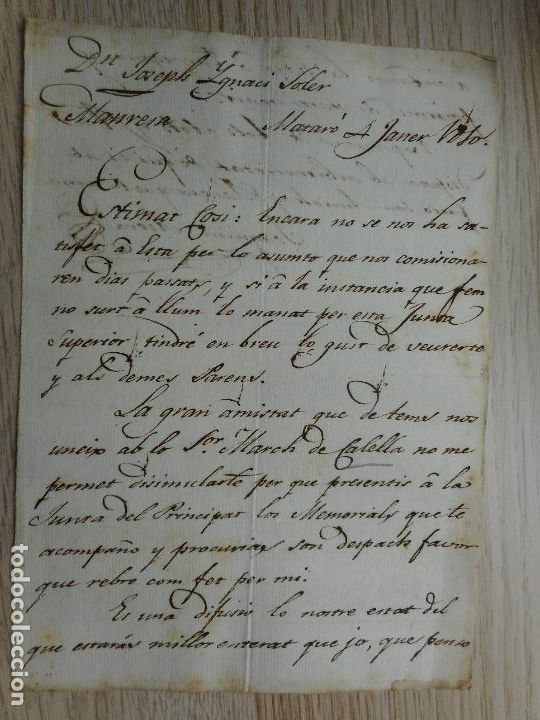 Dn Joseph Ygnaci Soler
Manresa Mataró 4 Janer 1810.
Estimat Cosi: Encara no se nos ha sa-
tisfet â Esta per lo asumto que nos comisiona-
ren dias passats, y si â la instancia que fem
no surt â llum lo manat per esta Junta
Superior tindré en breu lo gust de veurerte
y als demes Parens.
La gran âmistat que de tems nos
uneix ab lo Sor. March de Calella no me
permet disimularte per que presentis â la
Junta del Principat los Memorials que te
acompaño y procurias son despach favor
que rebre com fet per mi.
Es una difusio lo nostre estat del
que estarás millor enterat que jo, que penso
todocoleccion.net